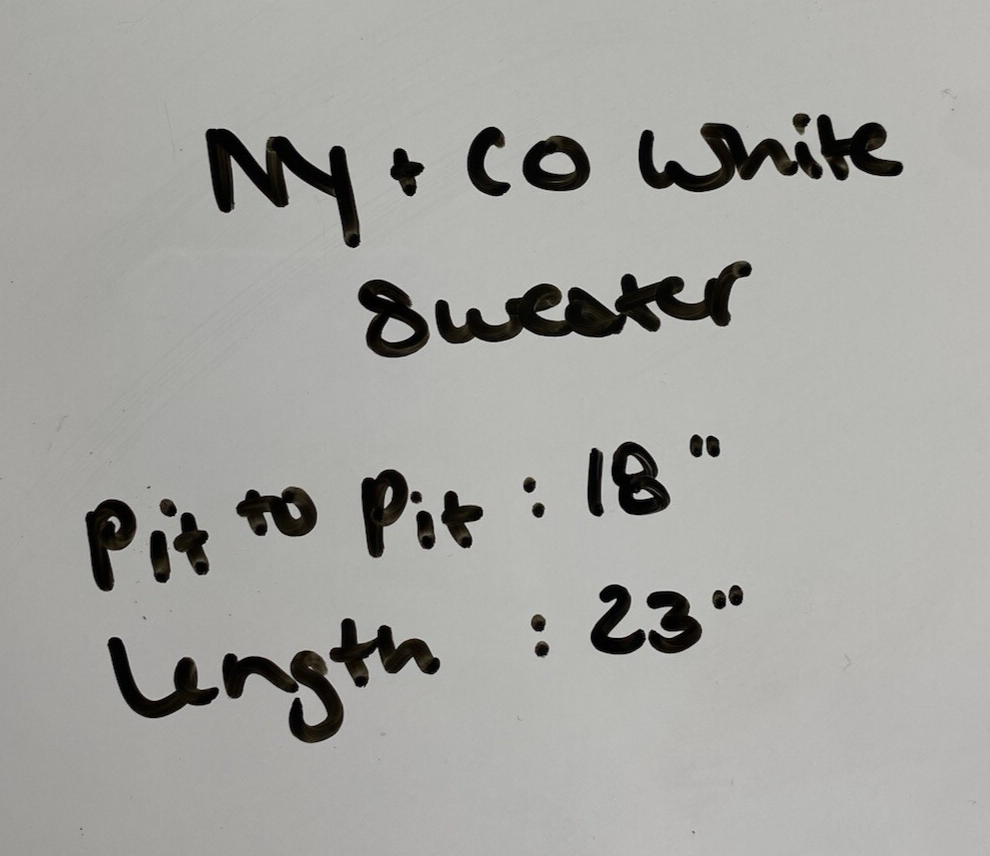 NY + CO White
Sweater
Pit to Pit : 18"
Length : 23"